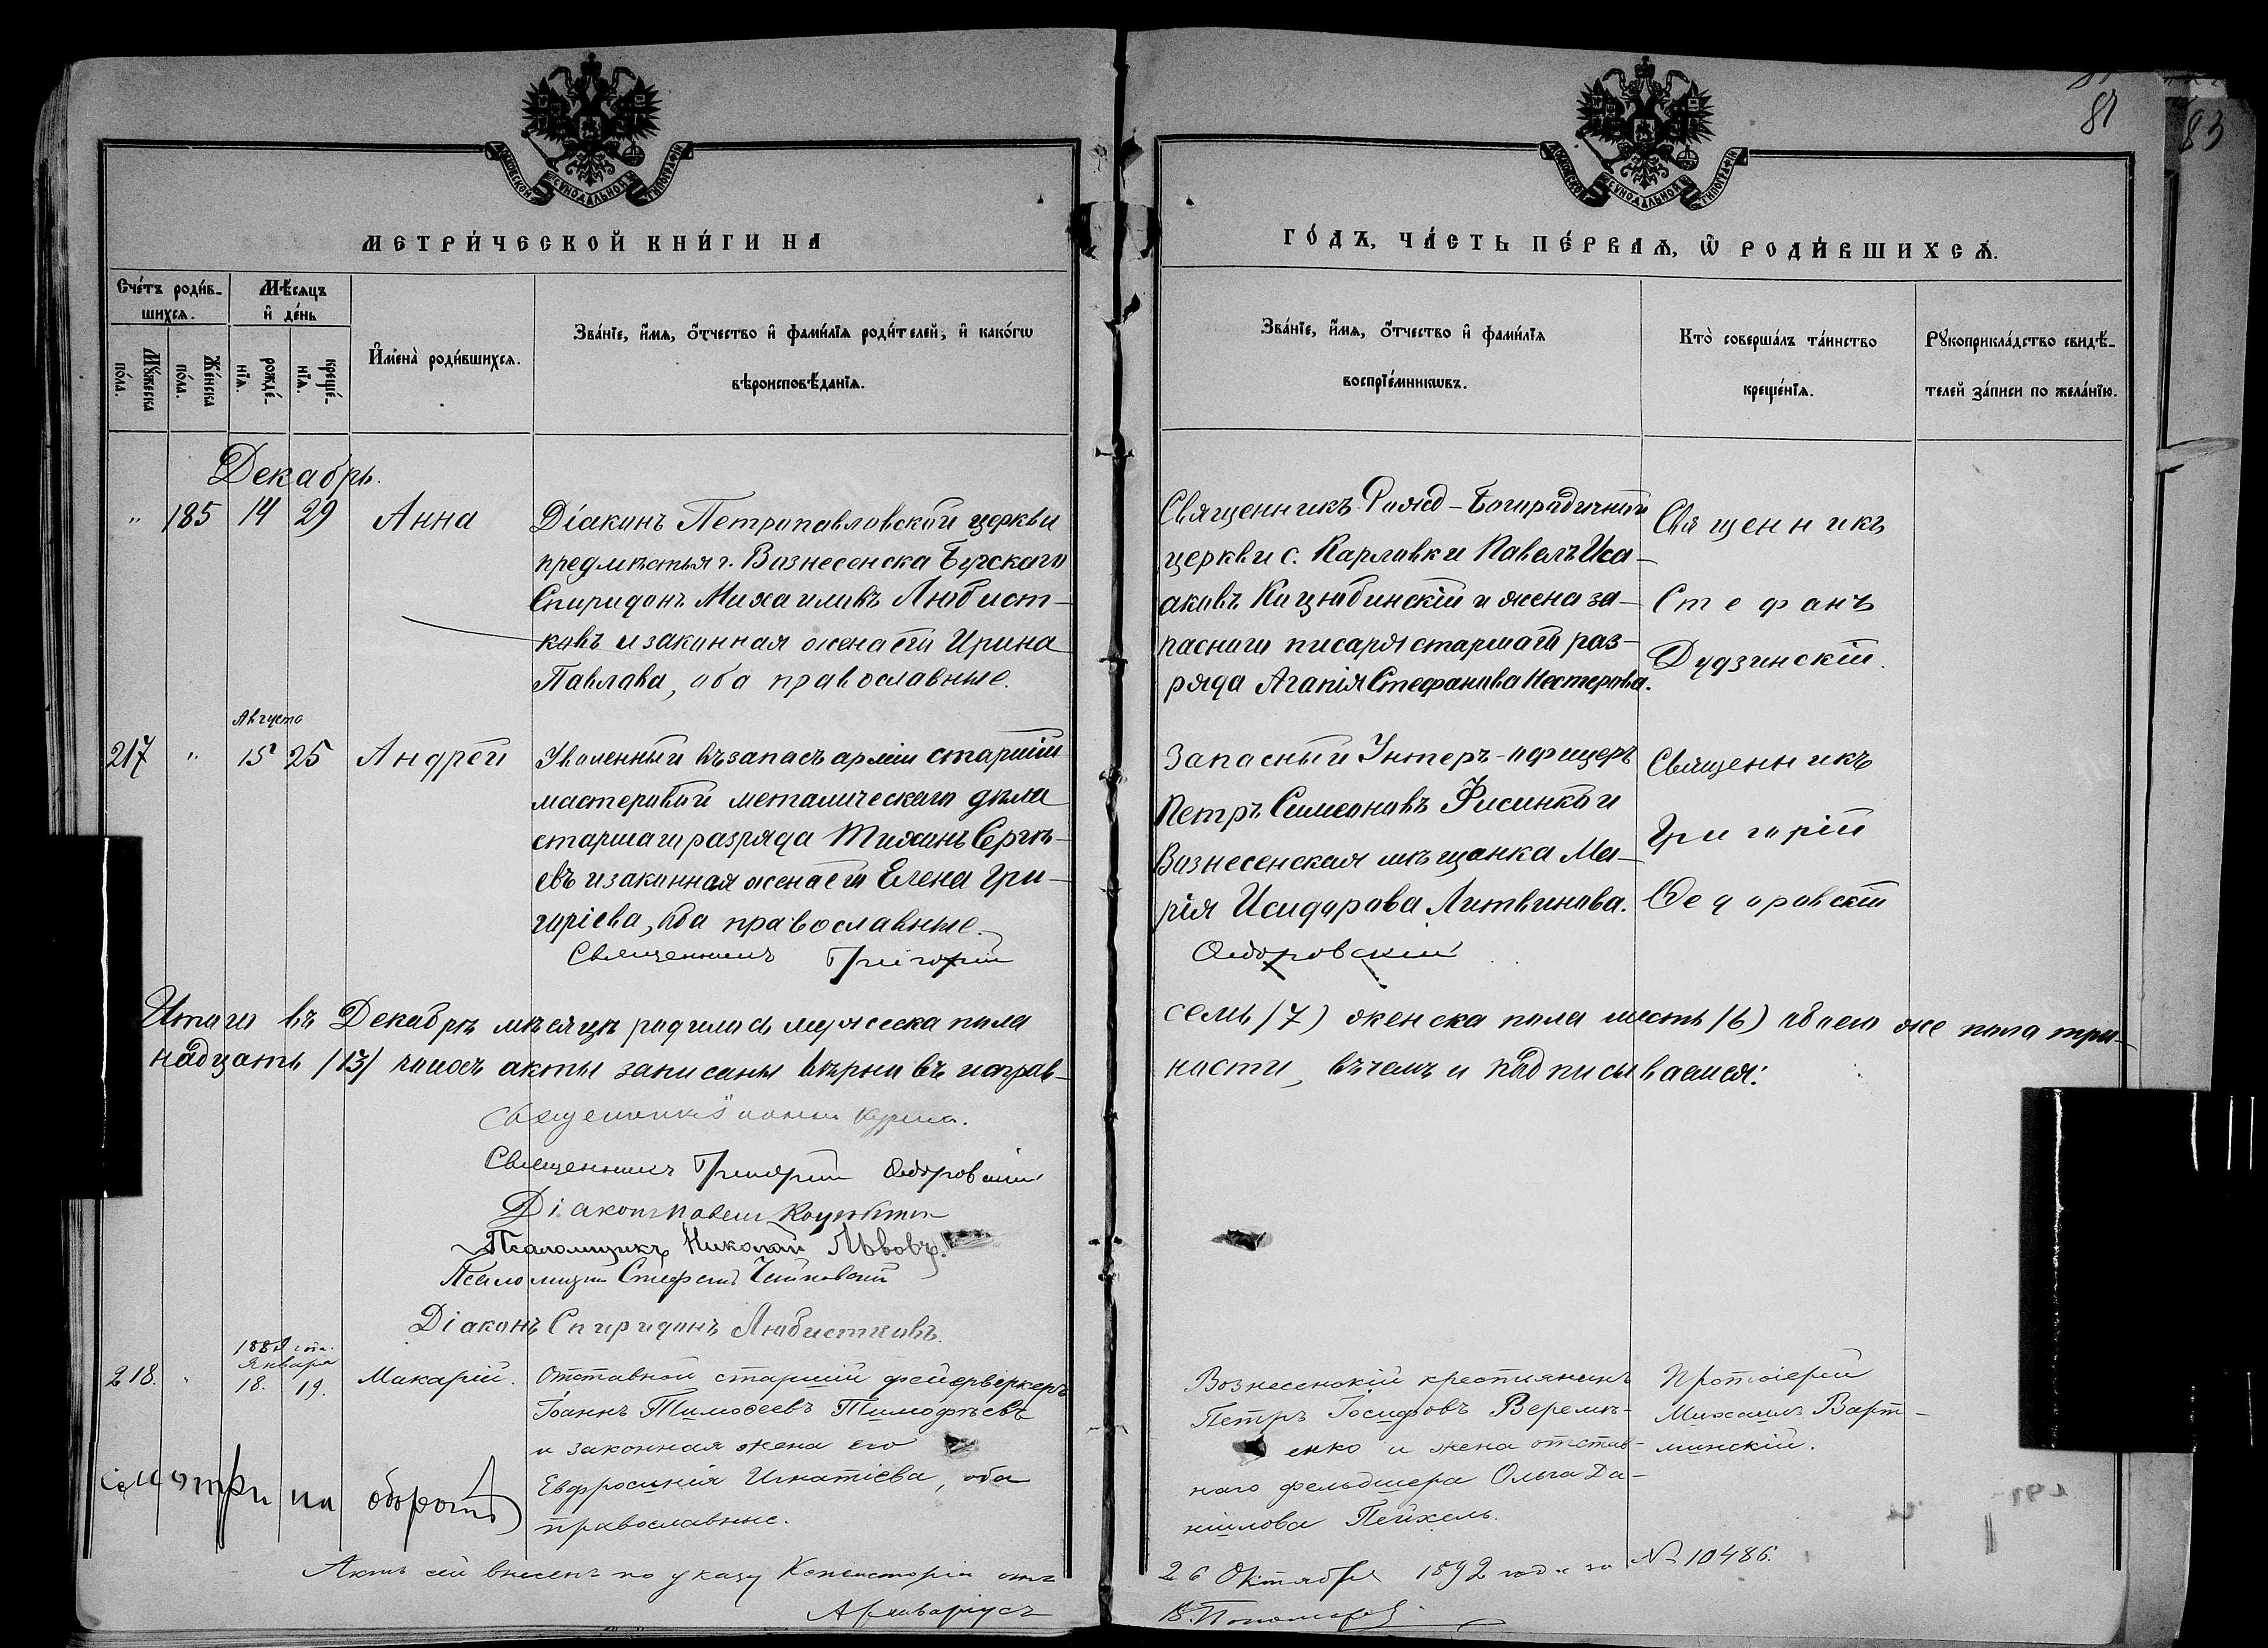 81
83
МОСКОВСКОЙ СѴНОДАЛЬНОЙ ТИПОГРАФІИ
МОСКОВСКОЙ СѴНОДАЛЬНОЙ ТИПОГРАФІИ
МЕТРИ́ЧЕСКОЙ КНИ́ГИ НА
ГО́ДЪ, ЧА́СТЬ ПЕ́РВАѦ, Ѡ РОДИ́ВШИХСѦ.
Сче́тъ роди́в-
шихсѧ.
Мꙋ́жеска по́ла.
Же́нска по́ла.
Мѣ́сѧцъ
и҆ де́нь
рожде́-нїѧ.
креще́-нїѧ.
И҆мена̀ роди́вшихсѧ.
Зва́нїе, и҆́мѧ, ѻ҆́тчество и҆ фами́лїѧ роди́телей, и҆ како́гѡ
вѣроисповѣ́данїѧ.
Зва́нїе, и҆́мѧ, ѻ҆́тчество и҆ фами́лїѧ
воспрїе́мникѡвъ.
Кто̀ соверша́лъ та́инство
креще́нїѧ.
Рꙋкоприкла́дство свидѣ́-
телей за́писи по жела́нїю.
Декабрь.
" 185 14 29 Анна
Діаконъ Петропавловской церкви
предмѣстья г. Вознесенска Бугскаго
Спиридонъ Михаиловъ Любист-
ковъ и законная жена его Ирина
Павлова, оба православные.
Священникъ Рожд-Богородичной
церкви с. Карловки Павелъ Иса-
аковъ Коцюбинскій и жена за-
паснаго писаря старшаго раз-
ряда Агапія Стефанова Нестерова.
Священникъ
Стефанъ
Дудзинскій.
Августа
217 " 15 25 Андрей
Уволенный въ запасъ арміи старшій
мастеровой металическаго дѣла
старшаго разряда Тихонъ Сергѣ-
евъ и законная жена его Елена Гри-
горіева, оба православные.
Запасный Унтеръ-офицеръ
Петръ Симеоновъ Фисинко и
Вознесенская мѣщанка Ма-
рія Исидорова Литвинова.
Священникъ
Григорій
Ѳедоровскій
Священникъ Григорій Ѳедоровскій
Итого въ Декабрѣ мѣсяцѣ родилось мужеска пола семь (7) женска пола шесть (6) обоего же пола три-
надцать (13) акты записаны вѣрно въ исправ-ности, въ чемъ и подписываемся:
Священникъ
Священникъ Григорій Ѳедоровскій
Діаконъ Павелъ
Псаломщикъ Николай Львовъ.
Псаломщикъ Стефанъ Чайковскій
Діаконъ Спиридонъ Любистковъ.
Января
218. " 18. 19. Макарій.
Отставной старшій фейерверкеръ
Іоаннъ Тимоѳеевъ Тимофѣевъ
и законная жена его
Евфросинія Игнатіева, оба
православные.
Вознесенскій крестьянинъ
Петръ Іосифовъ Веремѣ-
енко и жена отстав-
наго фельдшера Ольга Да-
ніилова Пейхель.
Протоіерей
Михаилъ Варт-
минскій.
смотри на оборотѣ
Актъ сей внесенъ по указу Консисторіи отъ 26 Октября 1892 года за № 10486.
Архиваріусъ В. Пономарев